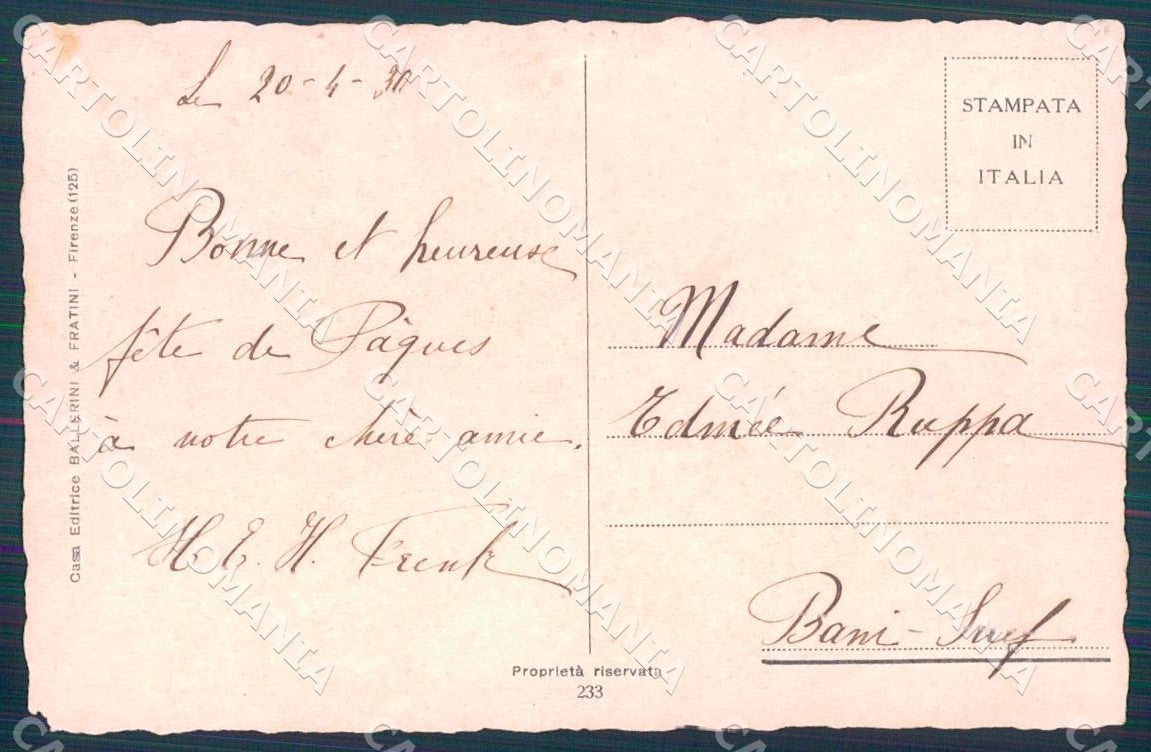 Le 20-4-30
Bonne et heureuse
fête de Pâques
à notre chère amie.
H. E. H. Frenk
Casa Editrice BALLERINI & FRATINI - Firenze (125)
Proprietà riservata
233
STAMPATA
IN
ITALIA
Madame
Edmée Ruppa
Bani-Suef
CARTOLINOMANIA